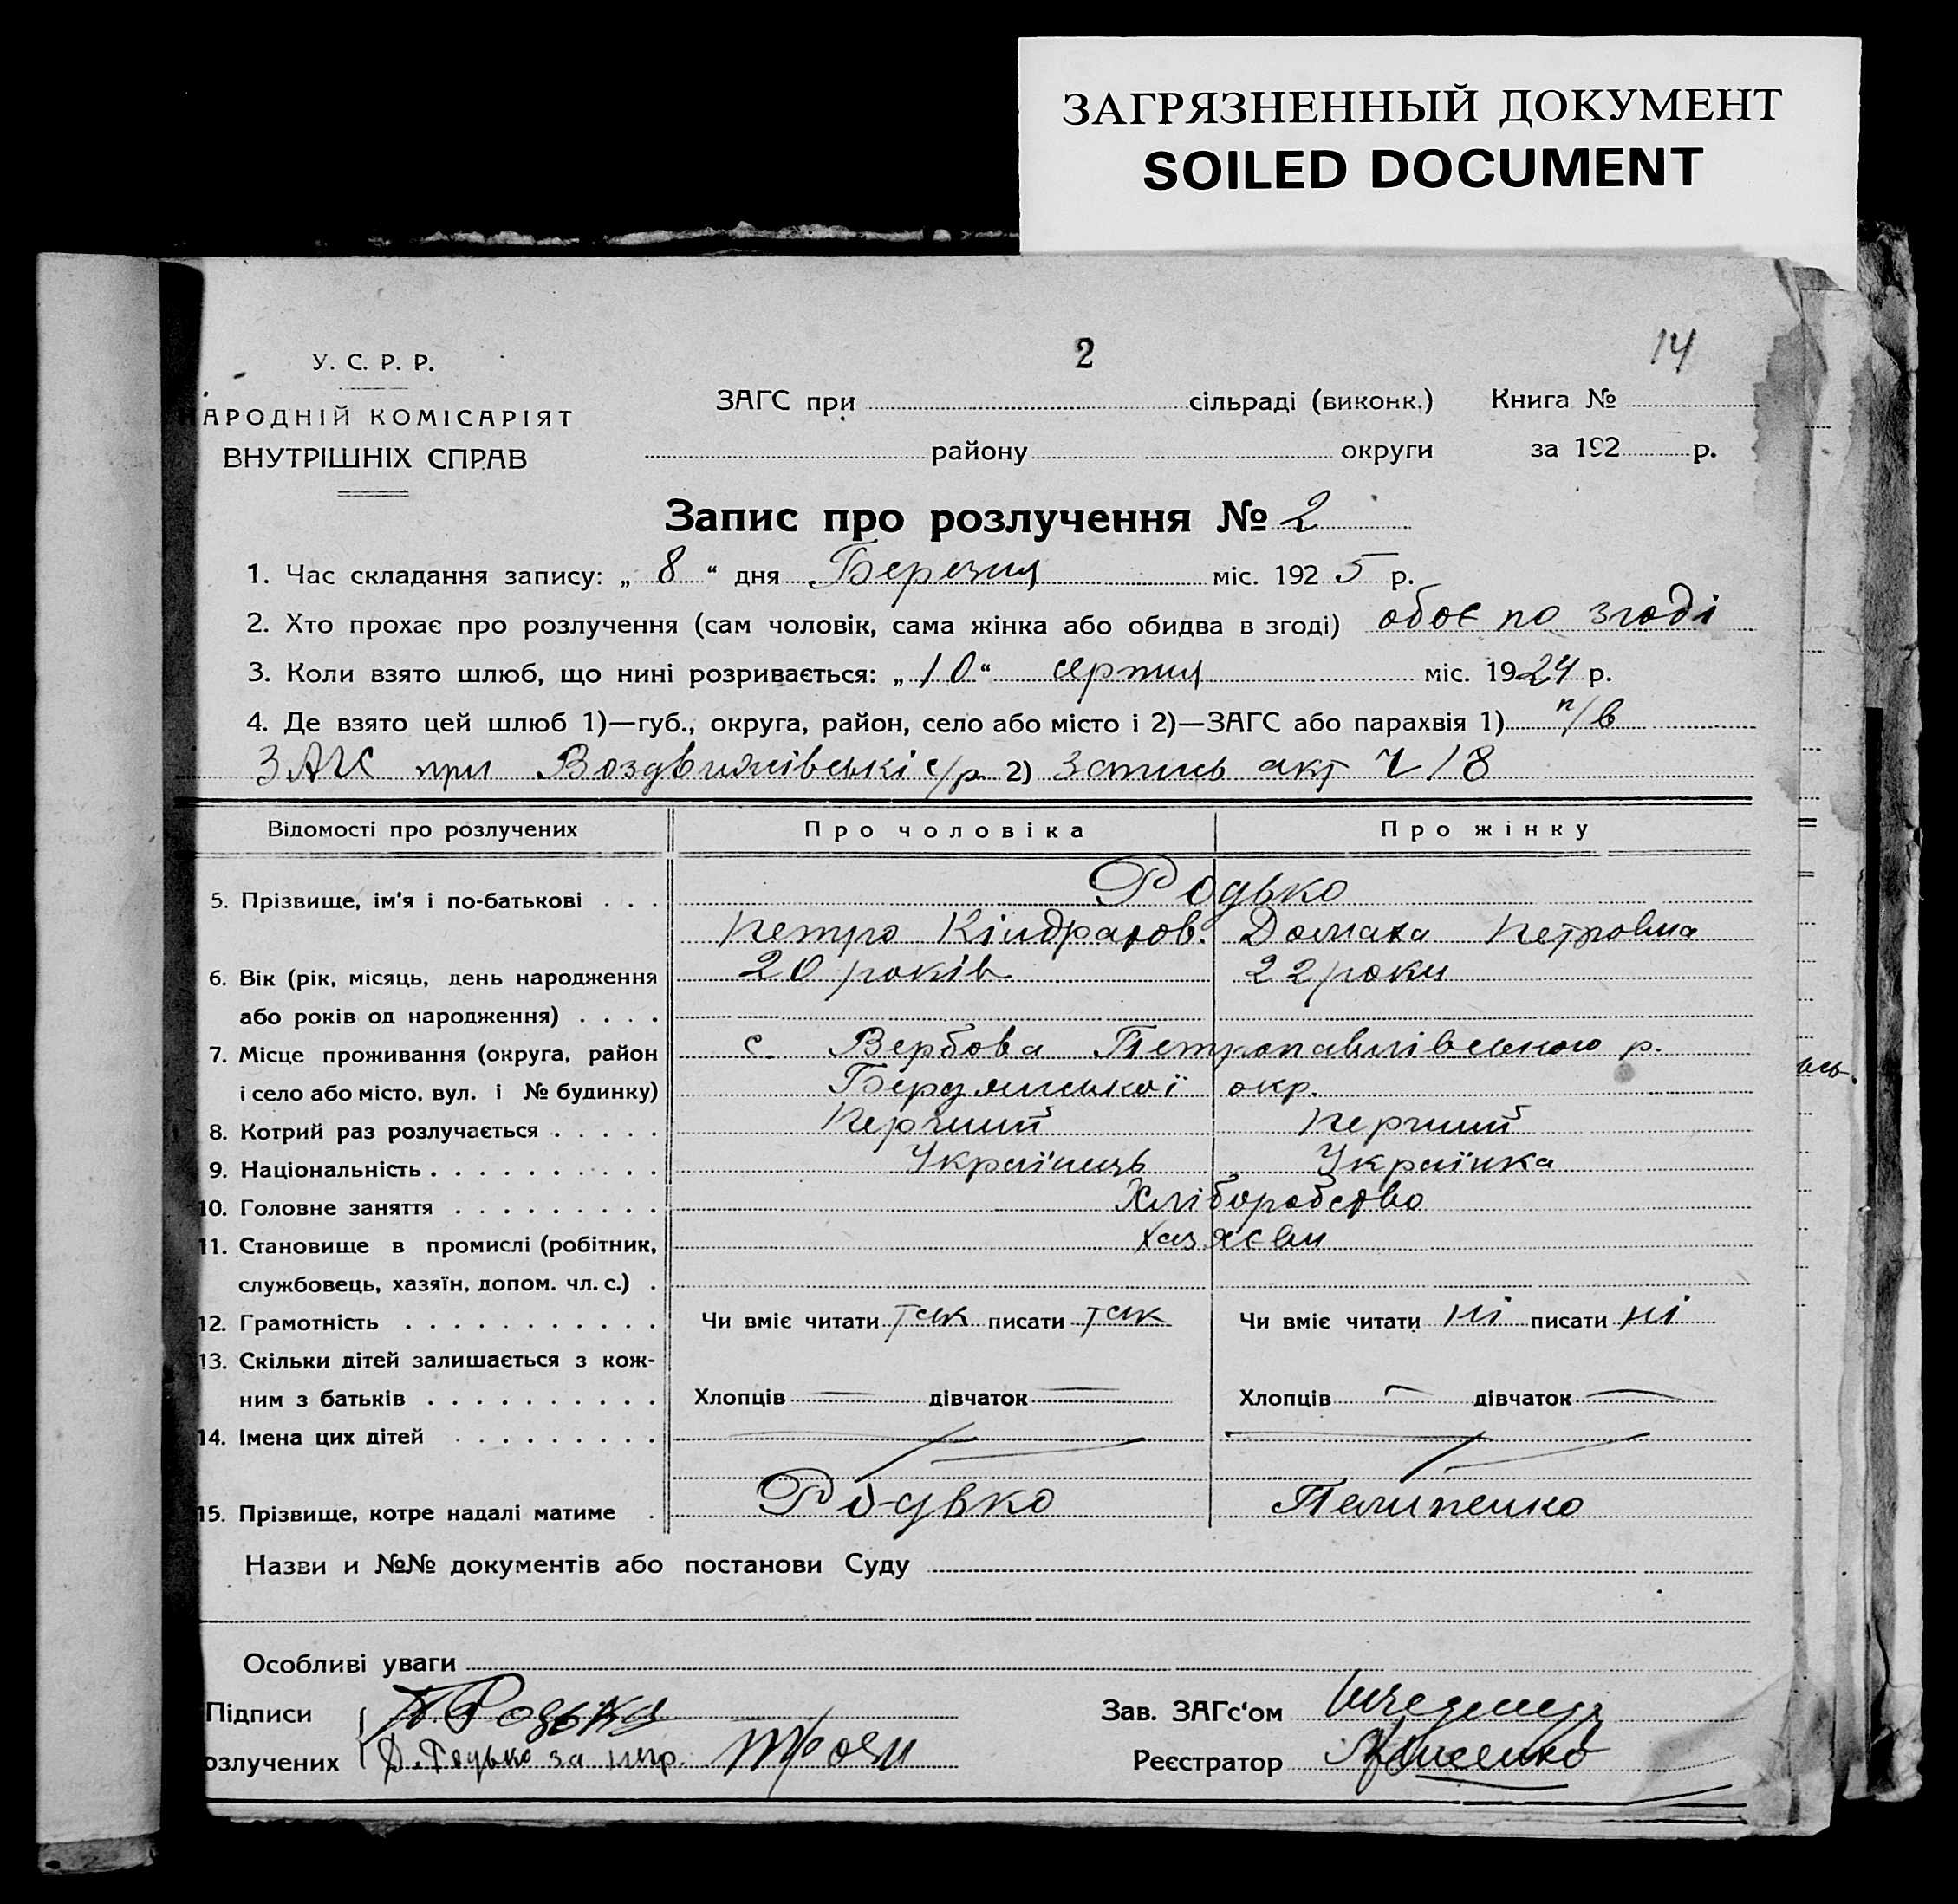 ЗАГРЯЗНЕННЫЙ ДОКУМЕНТ
SOILED DOCUMENT
2
14
У. С. Р. Р.
НАРОДНІЙ КОМІСАРІЯТ
ВНУТРІШНІХ СПРАВ
ЗАГС при сільраді (виконк.) Книга №
району округи за 192 р.
Запис про розлучення № 2
1. Час складання запису: „ 8 “ дня Березня міс. 192 5 р.
2. Хто прохає про розлучення (сам чоловік, сама жінка або обидва в згоді) обоє по згоді
3. Коли взято шлюб, що нині розривається: „ 10 “ серпня міс. 1924 р.
4. Де взято цей шлюб 1)—губ., округа, район, село або місто і 2)—ЗАГС або парахвія 1) п/в
ЗАГС при Воздвижівські с/р 2) Запись акт Ч 18
Відомості про розлучених Про чоловіка Про жінку
5. Прізвище, ім'я і по-батькові . . . Родько
Петро Кіндратов. Домаха Петровна
6. Вік (рік, місяць, день народження 20 років 22 роки
або років од народження) . . . .
7. Місце проживання (округа, район с. Вербова Петропавлівського р.
і село або місто, вул. і № будинку) Бердянської окр.
8. Котрий раз розлучається . . . . . Перший Перший
9. Національність . . . . . . . . . . Українець Українка
10. Головне заняття . . . . . . . . . Хліборобство
11. Становище в промислі (робітник, хазяєви
службовець, хазяїн, допом. чл. с.) .
12. Грамотність . . . . . . . . . . . Чи вміє читати так писати так Чи вміє читати ні писати ні
13. Скільки дітей залишається з кож-
ним з батьків . . . . . . . . . . Хлопців — дівчаток — Хлопців — дівчаток —
14. Імена цих дітей . . . . . . . . .
15. Прізвище, котре надалі матиме . Родько Пелипенко
Назви и №№ документів або постанови Суду
Особливі уваги
Підписи П Родько Зав. ЗАГс'ом
озлучених Д. Родько за негр. Реєстратор